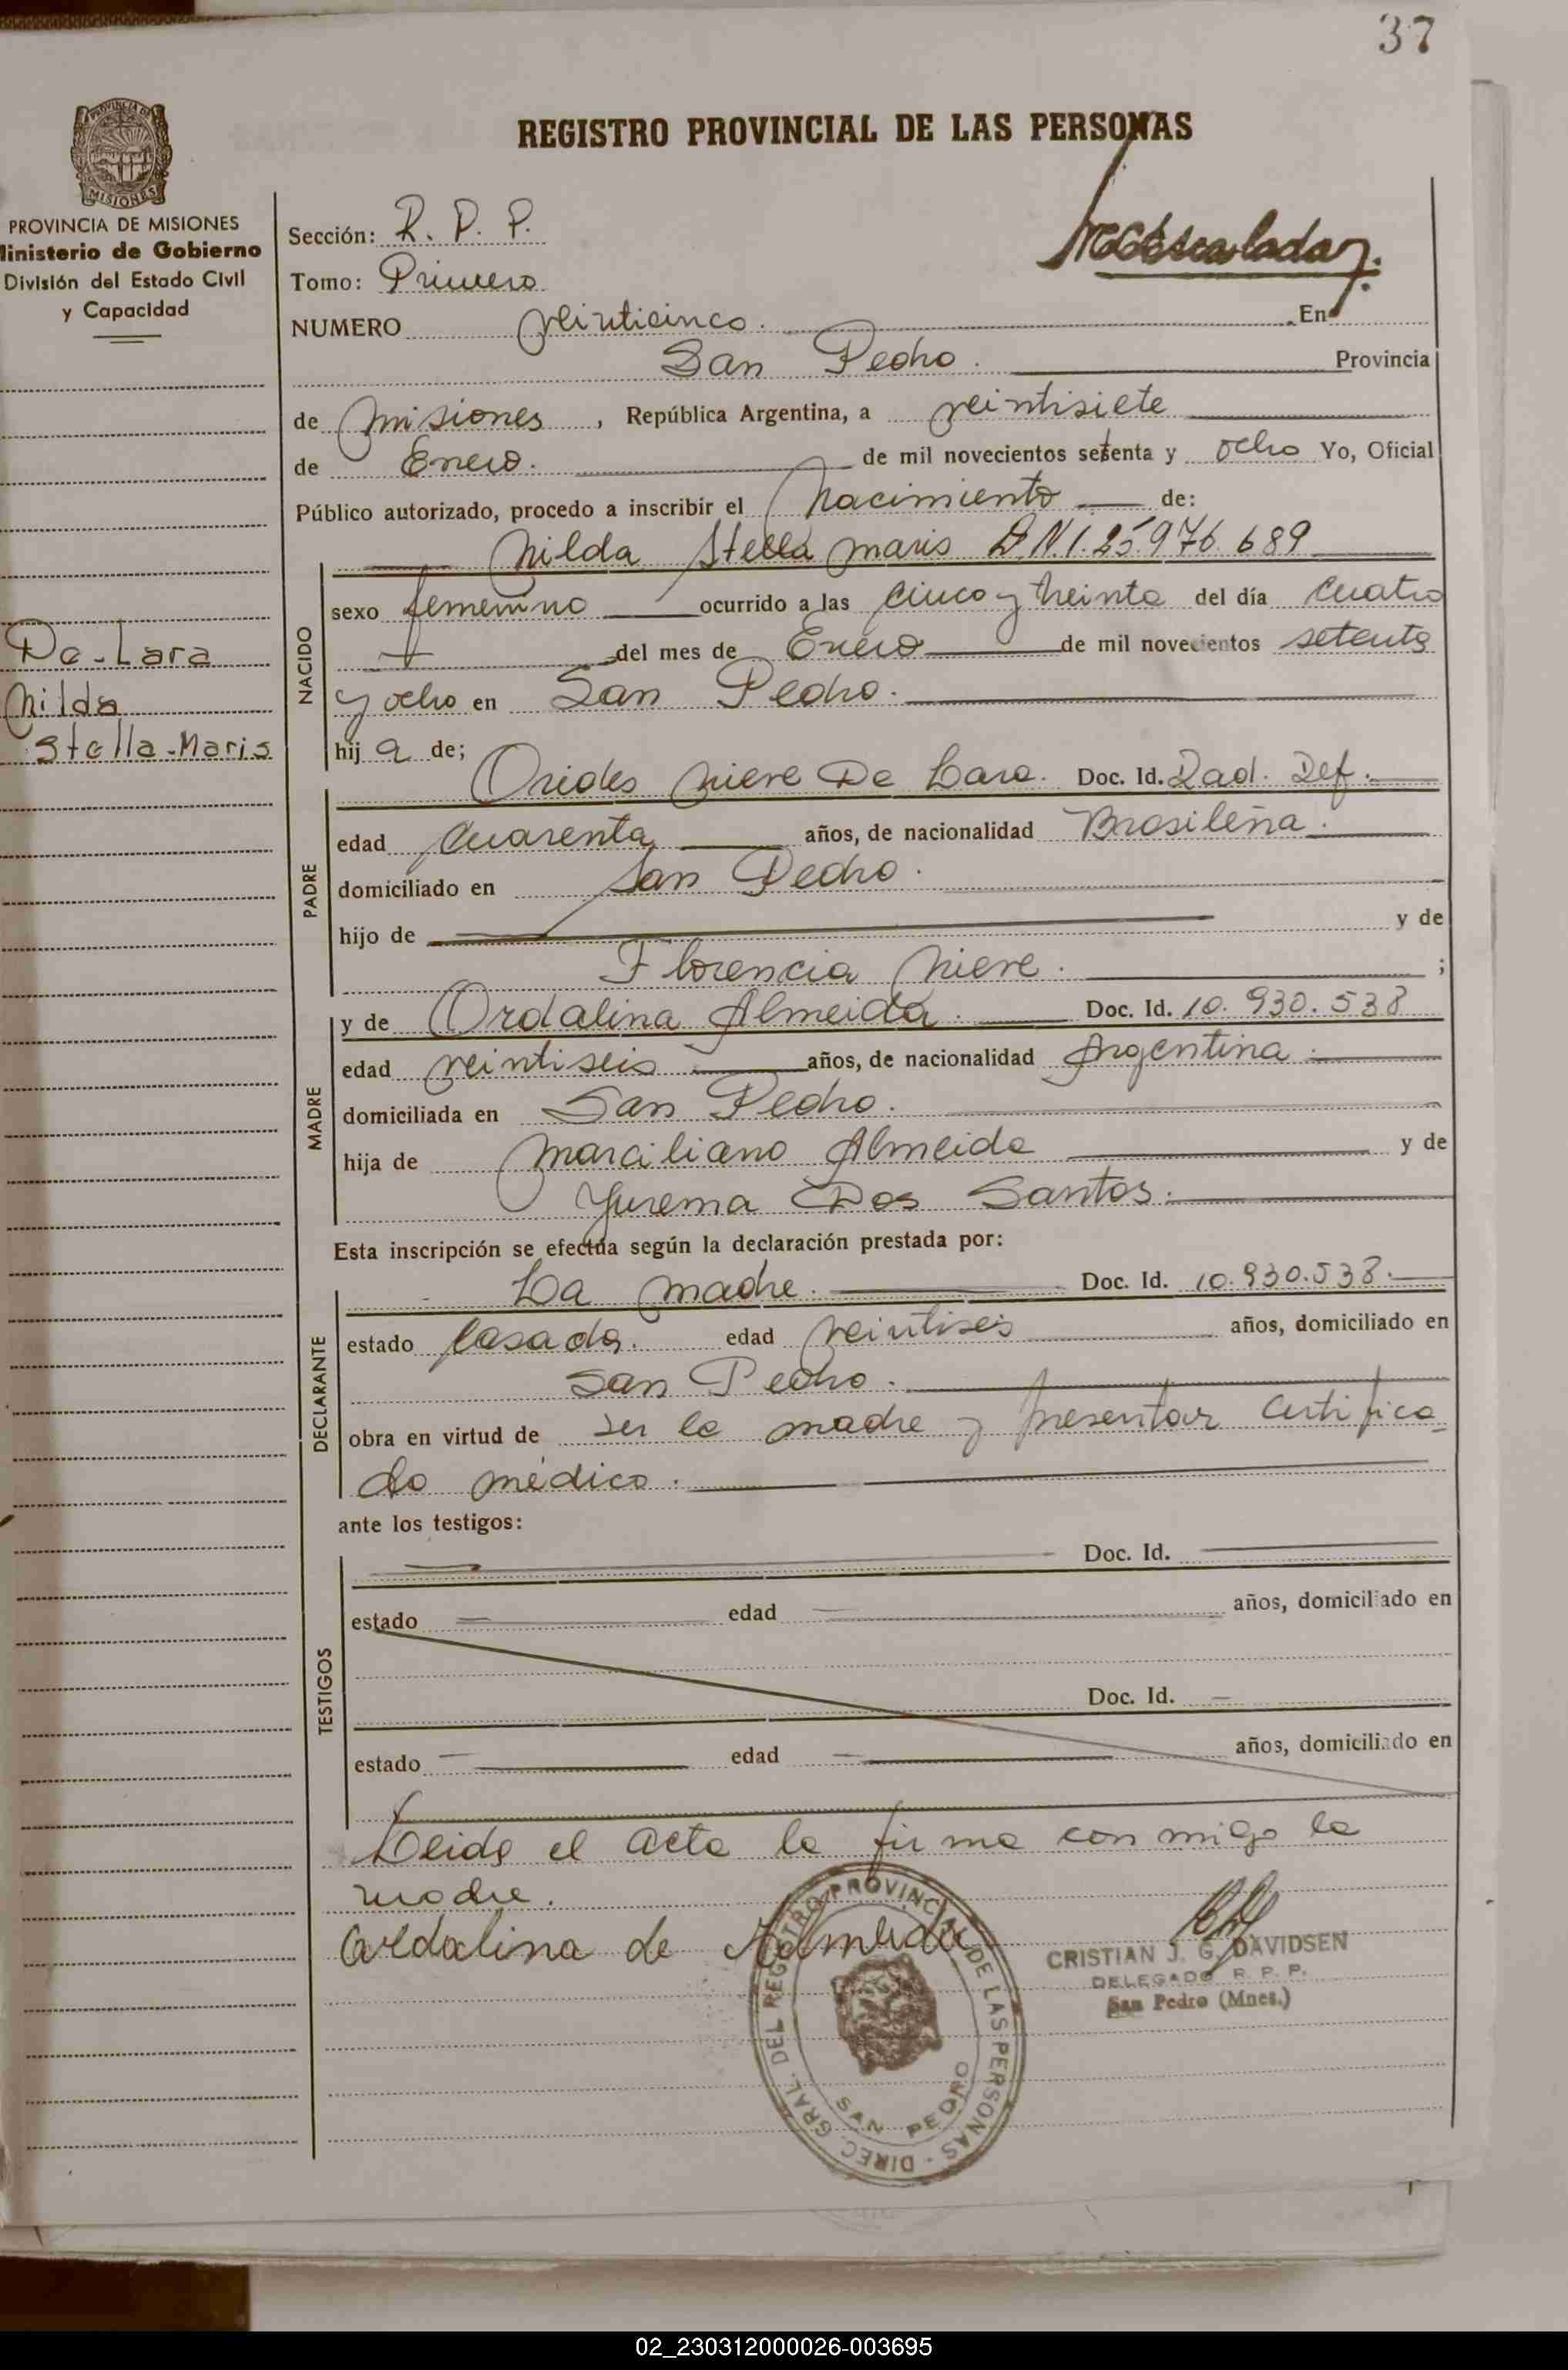 37
REGISTRO PROVINCIAL DE LAS PERSONAS
PROVINCIA DE MISIONES
MISIONES
PROVINCIA DE MISIONES
Ministerio de Gobierno
División del Estado Civil
y Capacidad
De-Lara
Nilda
Stella-Maris
Sección: R. P. P.
Tomo: Primero
NUMERO veinticinco. En
San Pedro. Provincia
de Misiones, República Argentina, a veintisiete
de Enero. de mil novecientos setenta y ocho Yo, Oficial
Público autorizado, procedo a inscribir el Nacimiento de:
Nilda Stella Maris D.N.I. 25.976.689
NACIDO
sexo femenino ocurrido a las cinco y treinta del día cuatro
del mes de Enero de mil novecientos setenta
y ocho en San Pedro.
hij a de;
Orides Nieve De Lara. Doc. Id. Rad. Def.
PADRE
edad Cuarenta años, de nacionalidad Brasileña.
domiciliado en San Pedro.
hijo de y de
Florencia Nieve. ;
MADRE
y de Ordalina Almeida. Doc. Id. 10.930.538
edad veintiseis años, de nacionalidad Argentina.
domiciliada en San Pedro.
hija de Marciliano Almeida y de
Yurema Dos Santos.
Esta inscripción se efectúa según la declaración prestada por:
DECLARANTE
La madre. Doc. Id. 10.930.538.
estado Casada. edad veintiseis años, domiciliado en
San Pedro.
obra en virtud de ser la madre y presentar certifica
do médico.
ante los testigos:
TESTIGOS
Doc. Id.
estado edad años, domiciliado en
Doc. Id.
estado edad años, domiciliado en
Leida el acta la firma conmigo la
madre.
Ordalina de Almeida
DIREC. GRAL. DEL REGISTRO PROVINCIAL DE LAS PERSONAS
SAN PEDRO
CRISTIAN J. G. DAVIDSEN
DELEGADO R. P. P.
San Pedro (Mnes.)
02_230312000026-003695